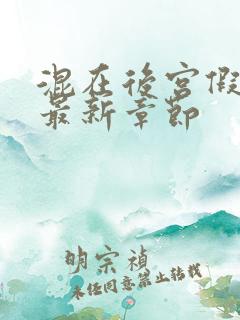 混在後宮假
最新章節
明宗禎
未经同意禁止转载